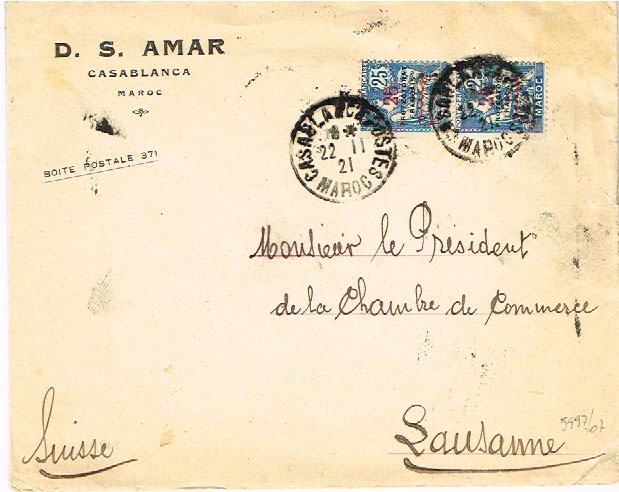 D. S. AMAR
CASABLANCA
MAROC
BOITE POSTALE 371
25
MAROC
CASABLANCA-POSTES
22 11
21
MAROC
CASABLANCA POSTES
MAROC
Monsieur le Président
de la Chambre de Commerce
Lausanne
Suisse
5997/07